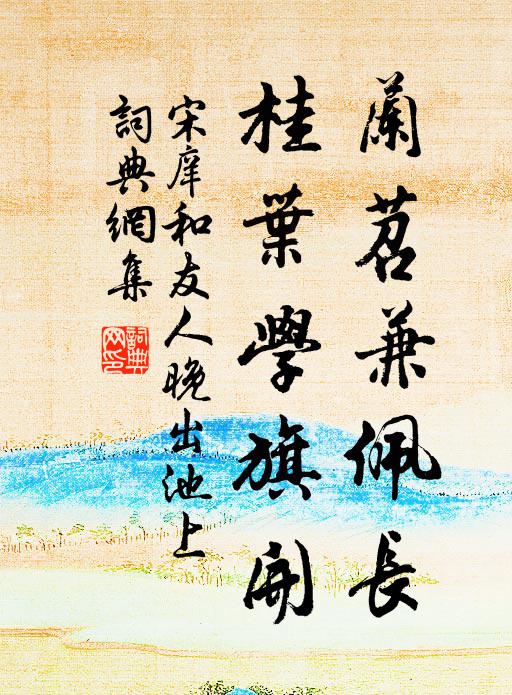 蘭苕兼佩長
桂葉學旗開
宋庠和友人晚出池上
詞典網集
詞典网印